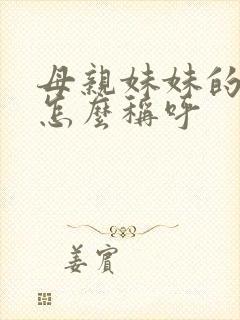 母親妹妹的
怎麼稱呼
姜賓